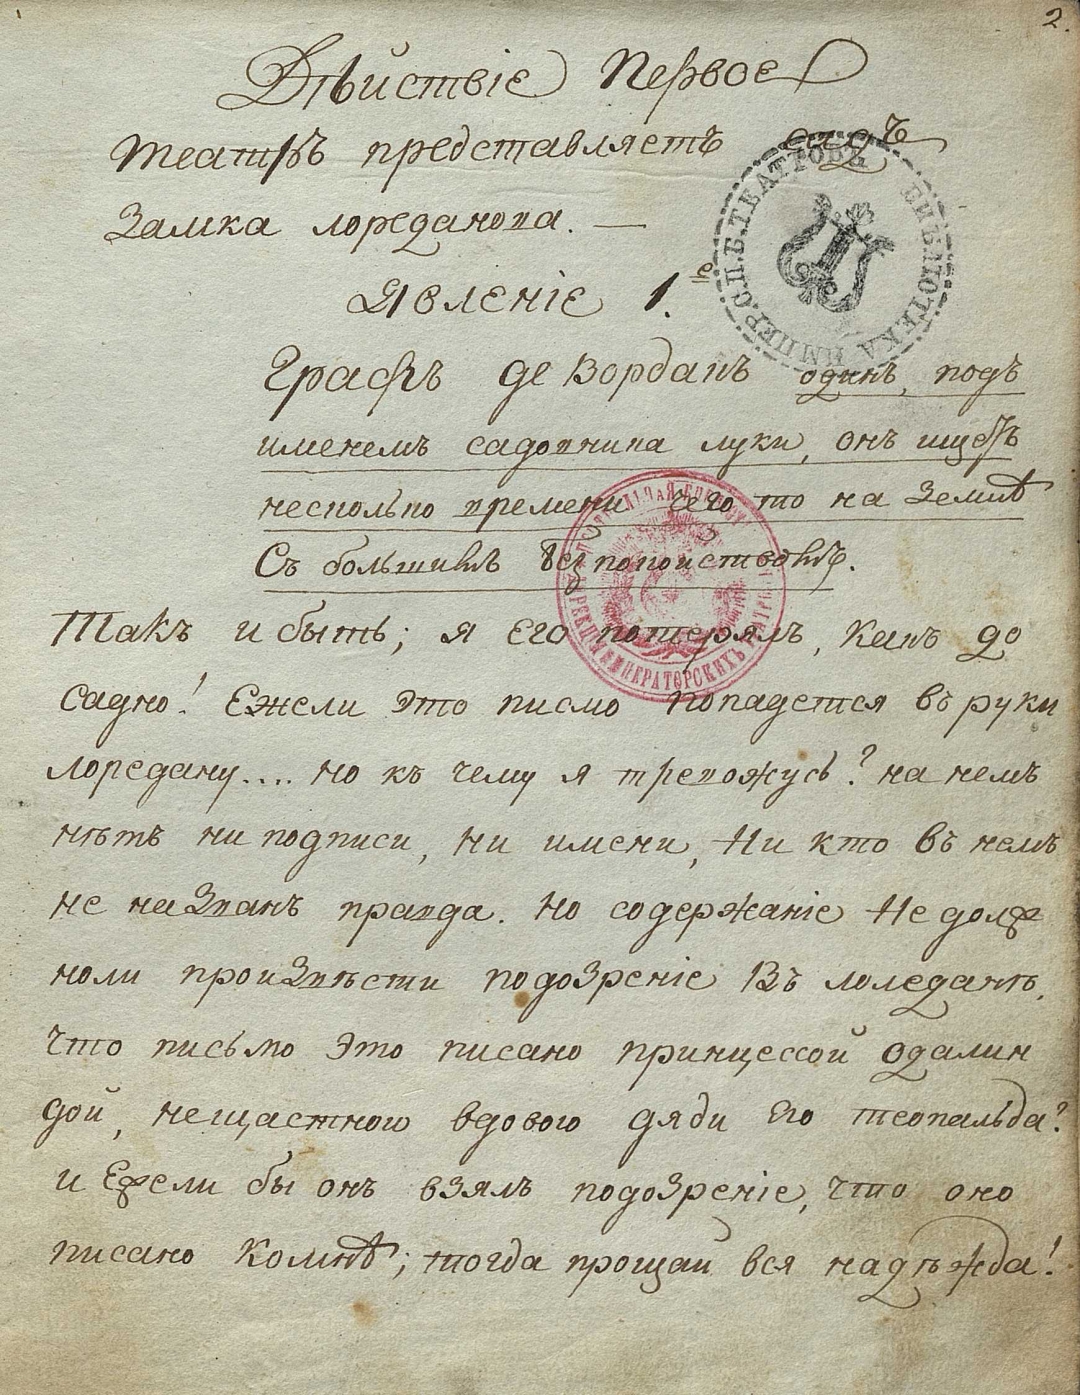 2.
Дѣйствіе Первое
Театръ представляетъ садъ
Замка лореданова. —
Явленіе 1.е
Графъ де Вордакъ одинъ, подъ
именемъ садовника луки, онъ ищетъ
несколько времени чего то на Землѣ
Съ большимъ безпокоиствомъ.
Такъ и быть; я Его потерялъ, какъ до
садно! Ежели это писмо попадется въ руки
лоредану.... но къ чему я тревожусь? на немъ
нѣтъ ни подписи, ни имени, Ни кто въ немъ
не названъ правда. Но содержаніе Не долж
ноли произвѣсти подозреніе Въ лоледанѣ,
Что письмо это писано принцессой одалин
дой, нещастного вдового дяди Его теопальда?
и Ежели бы онъ взялъ подозреніе, что оно
писано Комнѣ; тогда прощай вся надѣжда!
БИБЛІОТЕКА ИМПЕР. С.П.Б. ТЕАТРОВЪ
ИМПЕРАТОРСКИХЪ